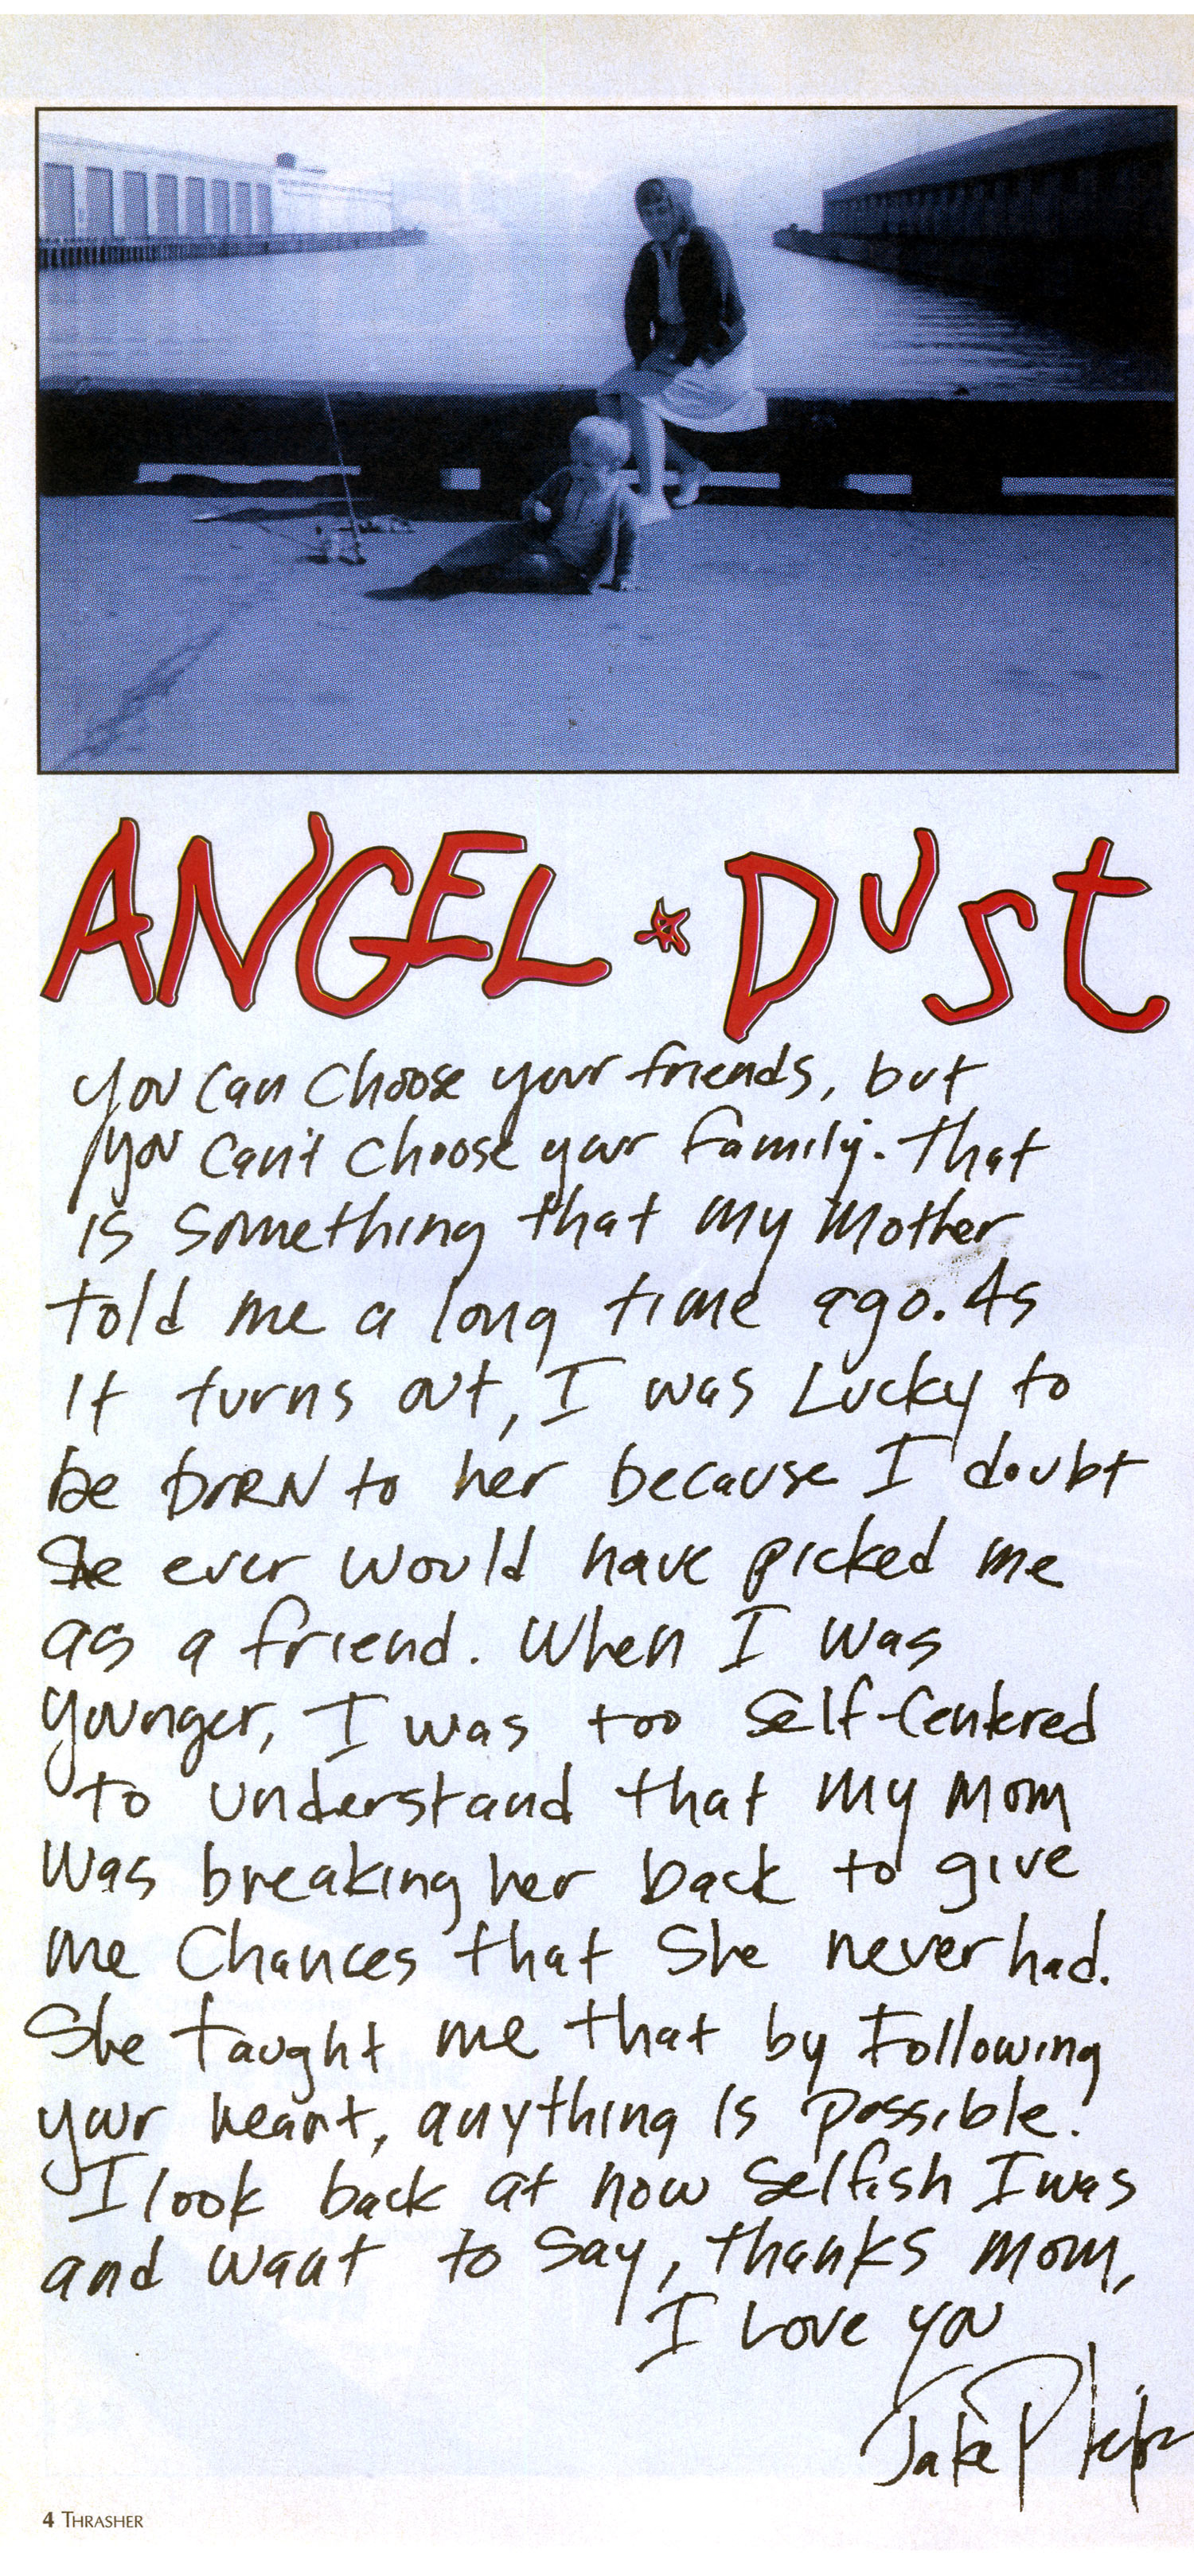 ANGEL * DUST
you can choose your friends, but
you can't choose your family. That
is something that my Mother
told me a long time ago. As
it turns out, I was Lucky to
be born to her because I doubt
She ever would have picked me
as a friend. When I was
younger, I was too Self-Centered
to understand that my Mom
was breaking her back to give
me Chances that She never had.
She taught me that by Following
your heart, anything is possible.
I look back at how Selfish I was
and want to Say, thanks Mom,
I Love you
Jake Phelps
4 THRASHER